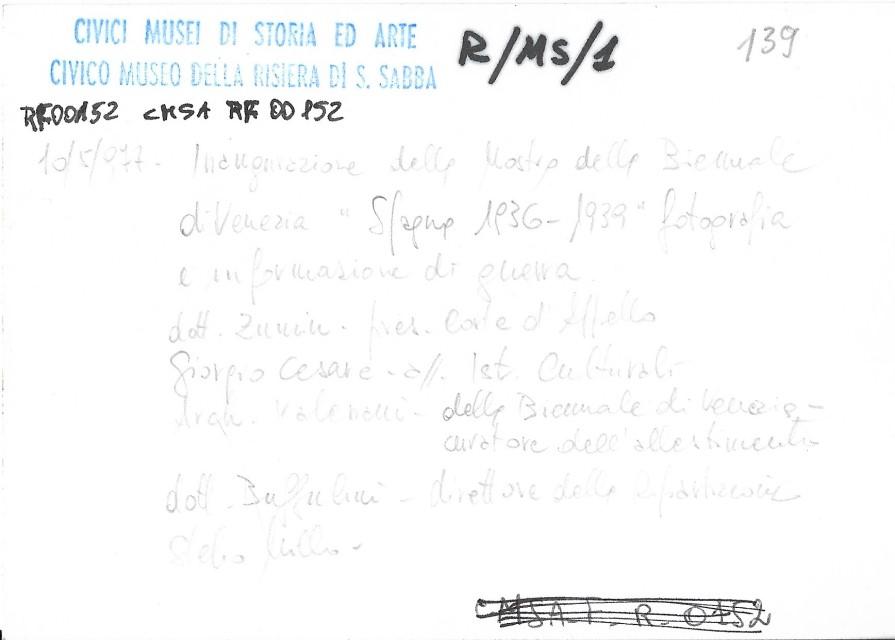 CIVICI MUSEI DI STORIA ED ARTE
CIVICO MUSEO DELLA RISIERA DI S. SABBA
R/MS/1
139
RF00152 CMSA RF 00152
10/5/977 - Inaugurazione della Mostra della Biennale
di Venezia "Spagna 1936-1939" fotografia
e informazione di guerra
dott. Zumin - pres. Corte d'Appello
Giorgio Cesare - Ist. Culturali
Arch. - della Biennale di Venezia -
curatore dell'allestimento
dott. Buffulini - direttore della Ripartizione
Stelio -